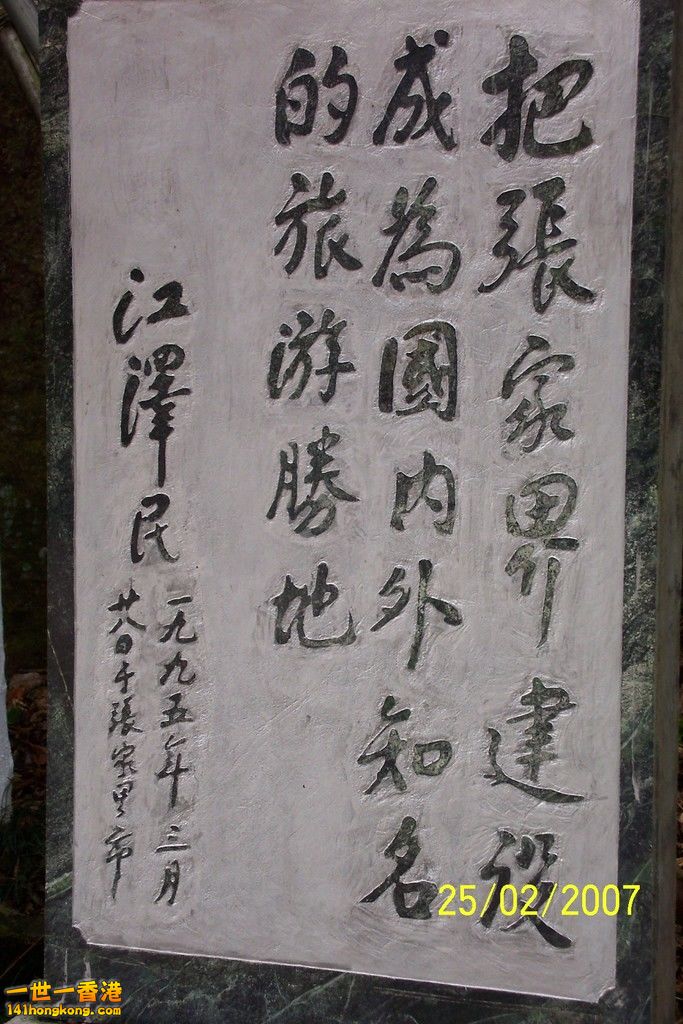 把張家界建设
成為國内外知名
的旅游勝地
江澤民
一九九五年三月
廿八日于張家界市
25/02/2007
一世一香港
141hongkong.com